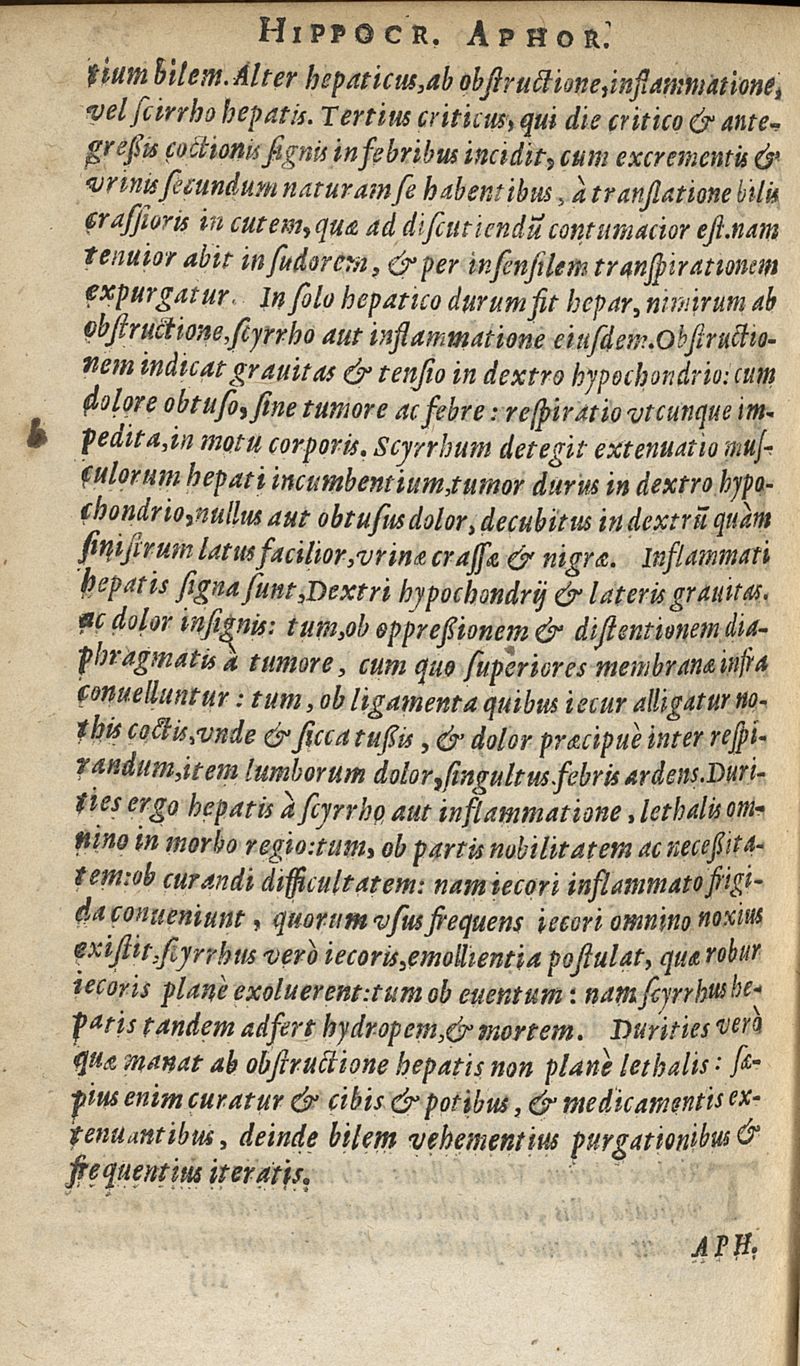 HIPPOCR. APHOR.
tium bilem. Alter hepaticus, ab obſtructione, inflammatione,
vel ſcirrho hepatis. Tertius criticus, qui die critico & ante-
greßis coctionis ſignis in febribus incidit, cum excrementis &
vrinis ſecundum naturam ſe habentibus, à tranſlatione bilis
craſſioris in cutem, quæ ad diſcutiendũ contumacior eſt. nam
tenuior abit in ſudorem, & per inſenſilem tranſpirationem
expurgatur. In ſolo hepatico durum fit hepar, nimirum ab
obſtructione, ſcyrrho aut inflammatione eiuſdem. Obſtructio-
nem indicat grauitas & tenſio in dextro hypochondrio: cum
dolore obtuſo, ſine tumore ac febre: reſpiratio vtcunque im-
pedita, in motu corporis. Scyrrhum detegit extenuatio muſ-
culorum hepati incumbentium, tumor durus in dextro hypo-
chondrio, nullus aut obtuſus dolor, decubitus in dextrũ quàm
ſiniſtrum latus facilior, vrinæ craſſæ & nigræ. Inflammati
hepatis ſigna ſunt, Dextri hypochondrij & lateris grauitas,
ac dolor inſignis: tum, ob oppreßionem & diſtentionem dia-
phragmatis à tumore, cum quo ſuperiores membranæ infra
conuelluntur: tum, ob ligamenta quibus iecur alligatur no-
this coctis, vnde & ſicca tußis, & dolor præcipuè inter reſpi-
randum, item lumborum dolor, ſingultus. febris ardens. Duri-
ties ergo hepatis à ſcyrrho aut inflammatione, lethalis om-
nino in morbo regio: tum, ob partis nobilitatem ac neceßita-
tem: ob curandi difficultatem: nam iecori inflammato frigi-
da conueniunt, quorum vſus frequens iecori omnino noxius
exiſtit. ſcyrrhus verò iecoris, emollientia poſtulat, quæ robur
iecoris planè exoluerent: tum ob euentum: nam ſcyrrhus he-
patis tandem adfert hydropem, & mortem. Durities verò
quæ manat ab obſtructione hepatis non planè lethalis: ſæ-
pius enim curatur & cibis & potibus, & medicamentis ex-
tenuantibus, deinde bilem vehementius purgationibus &
frequentius iteratis.
APH.